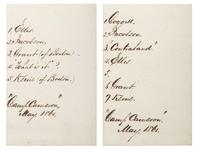 1. Ellis.
2. Jacobson.
3. Grant (of Boston.
4. "What is it"?
5. Keene (of Boston.)
"Camp Cameron"
May 1861.
1. Cogswell.
2. Jacobson.
3. Contraband?
4. Ellis.
5.
6. Grant.
7. Keene.
"Camp Cameron".
May, 1861.